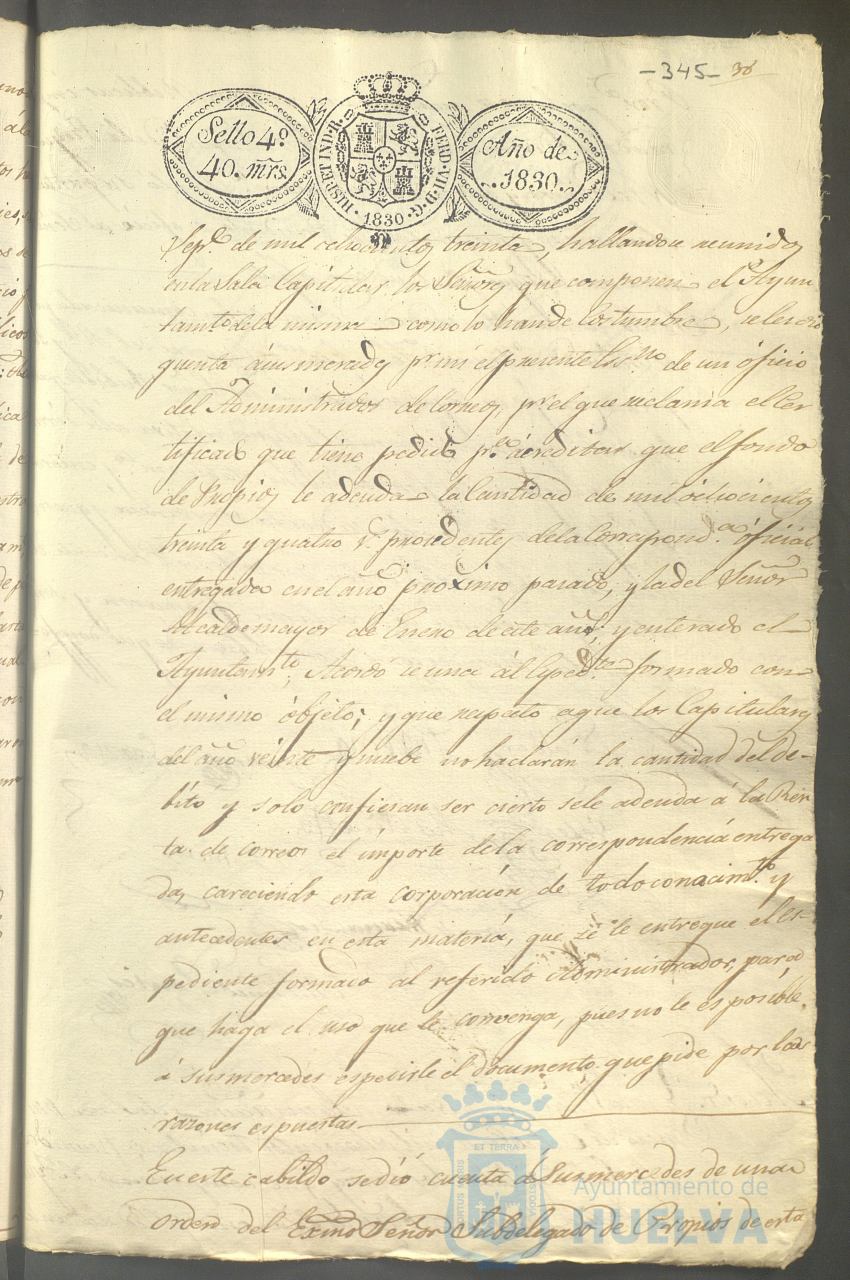 -345- 38
Sello 4º
40. mrs.
HISP. ET IND. R. FERD. VII. D. G. 1830
Año de
1830.
Sepe. de mil ochocientos treinta, hallandose reunidos
en la Sala Capitular los Señores que componen el Ayun
tamto. de la misma como lo han de costumbre, se les dio
quenta á sus mercedes pr. mi el presente Essno. de un óficio
del Administrador de Correos, pr. el que reclama el Cer
tificado que tiene pedido pa. acreditar que el fondo
de Propios le adeuda la Cantidad de mil ochocientos
treinta y quatro rs. procedentes de la Corresponda. óficial
entregada en el año proximo pasado, y la del Señor
Alcalde mayor de Enero de este año; y enterado el
Ayuntamto. Acordó se una ál Espedte. formado con
el mismo óbjeto; y que respeto a que los Capitulares
del año veinte y nuebe no haclarán la cantidad del de-
bíto y solo confiesan ser cierto se le adeuda á la Ren
ta de correos el importe de la correspondencia entrega
da, careciendo esta corporación de todo conocimto. y
antecedentes en esta materia, que se le entregue el es-
pediente formado al referido Administrador, para
que haga el uso que le convenga, pues no le es posible
á sus mercedes espedirle el documento que pide por las
razones espuestas
En este cabildo se dió cuenta á Sus mercedes de una
orden del Exmo Señor Subdelegado de Propios de esta
ET TERRA
Ayuntamiento de
HUELVA